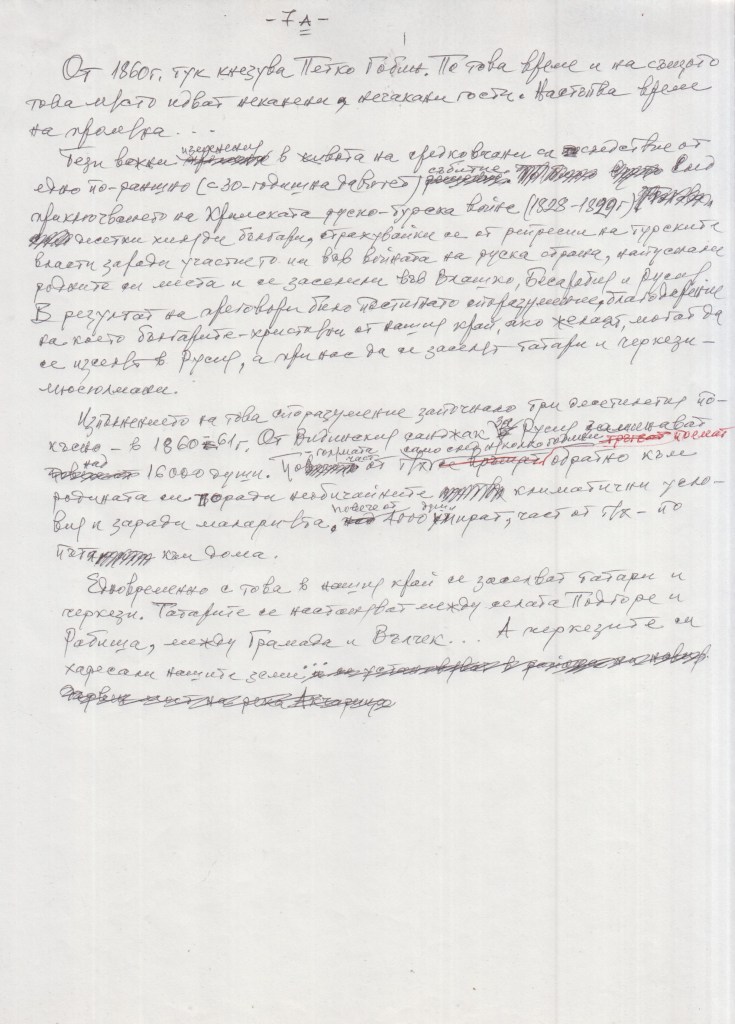 - 7 А -
От 1860г. тук кнезува Петко Гобин. По това време и на същото
това място идват неканени, нечакани гости. Настъпва време
на промяна...
Тези важни изменения в живота на средковчани са следствие от
едно по-раншно (с 30-годишна давност) събитие. След
приключването на Кримската руско-турска война (1828-1829г)
десетки хиляди българи, страхувайки се от репресии на турските
власти заради участието им във войната на руска страна, напуснали
родните си места и се заселили във Влашко, Бесарабия и Русия.
В резултат на преговори било постигнато споразумение, благодарение
на което българите-християни от нашия край, ако желаят, могат да
се изселят в Русия, а при нас да се заселят татари и черкези -
мюсюлмани.
Изпълнението на това споразумение започнало три десетилетия по-
късно - в 1860-61г. От Видинския санджак за Русия заминават
над 16000 души. Голямата част от т/х само след няколко години поемат обратно към
родината си поради необичайните климатични усло-
вия и заради маларията, повече от 4000 души умират, част от т/х - по
пътя към дома.
Едновременно с това в нашия край се заселват татари и
черкези. Татарите се настаняват между селата Подгоре и
Рабиша, между Грамада и Вълчек... А черкезите си
харесали нашите земи...